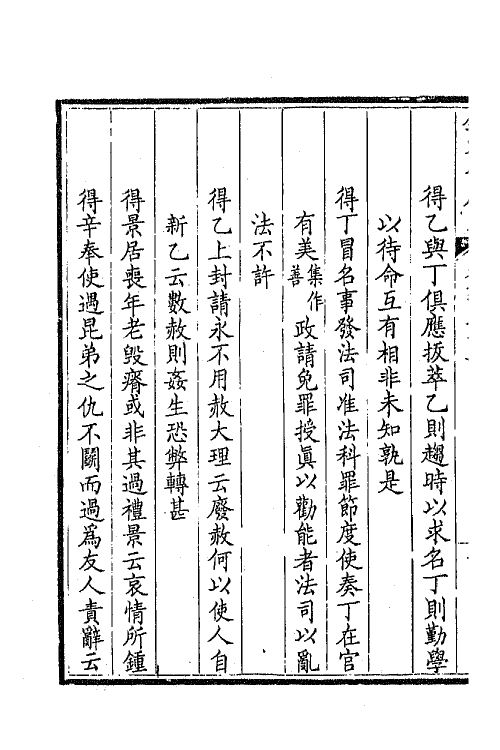 得乙與丁俱應拔萃乙則趨時以求名丁則勤學
以待命互有相非未知孰是
得丁冒名事發法司准法科罪節度使奏丁在官
有美集作善政請免罪授眞以勸能者法司以亂
法不許
得乙上封請永不用赦大理云廢赦何以使人自
新乙云數赦則姦生恐弊轉甚
得景居喪年老毀瘠或非其過禮景云哀情所鍾
得辛奉使遇昆弟之仇不鬬而過爲友人責辭云